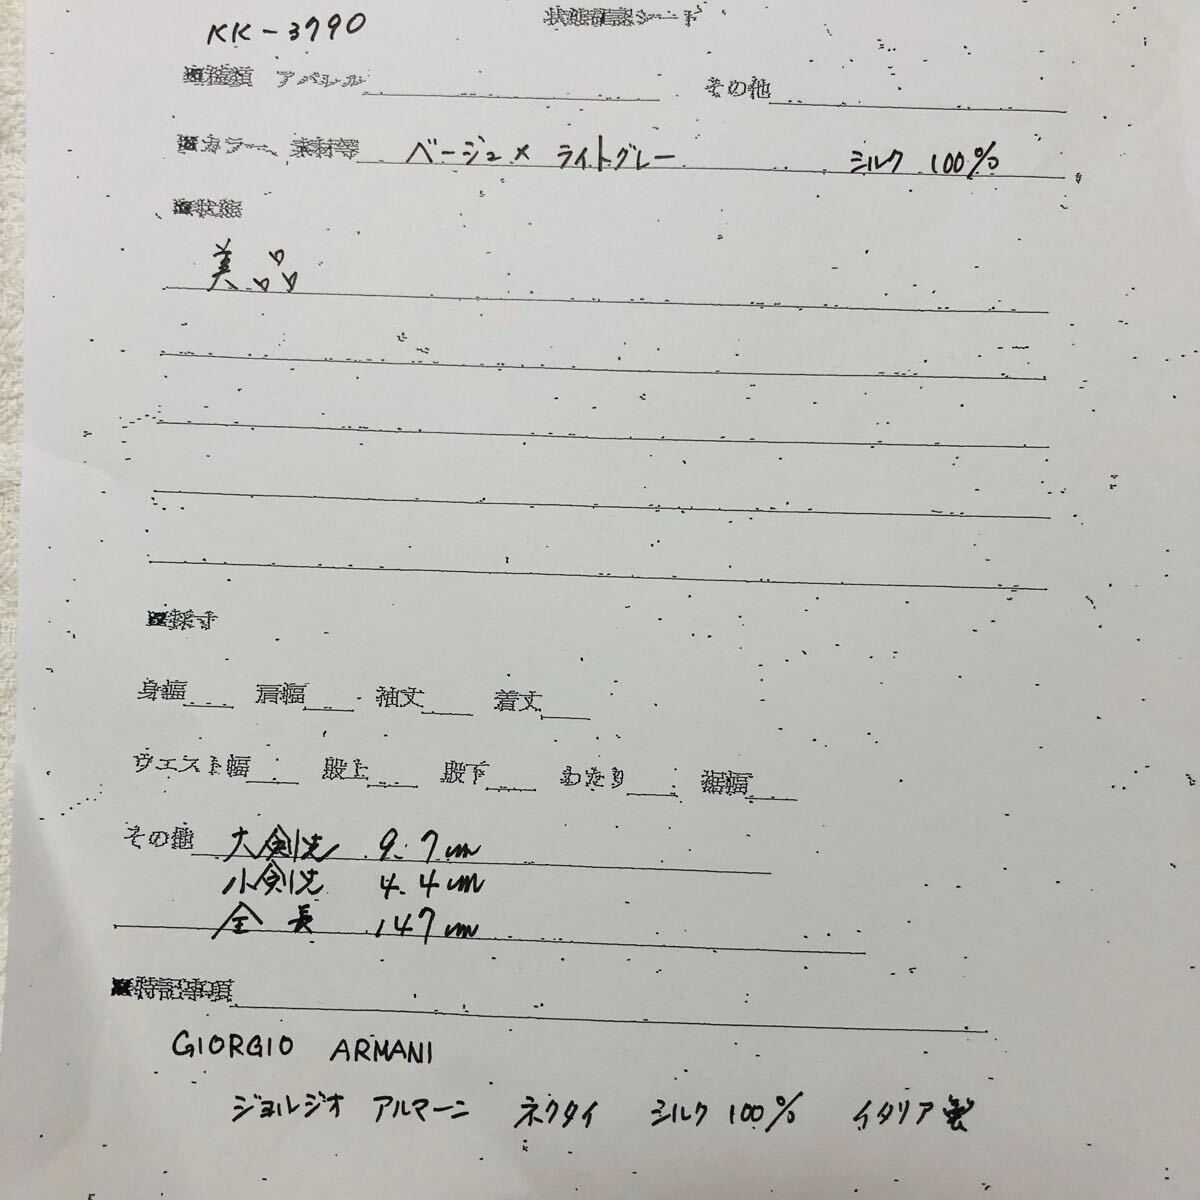 状態確認シート
KK-3790
■種類 アパレル その他
■カラー、素材等 ベージュ× ライトグレー シルク 100%
■状態
美品
■採寸
身幅 肩幅 袖丈 着丈
ウエスト幅 股上 股下 わたり 裾幅
その他 大剣先 9.7cm
小剣先 4.4cm
全長 147cm
■特記事項
GIORGIO ARMANI
ジョルジオ アルマーニ ネクタイ シルク 100% イタリア製